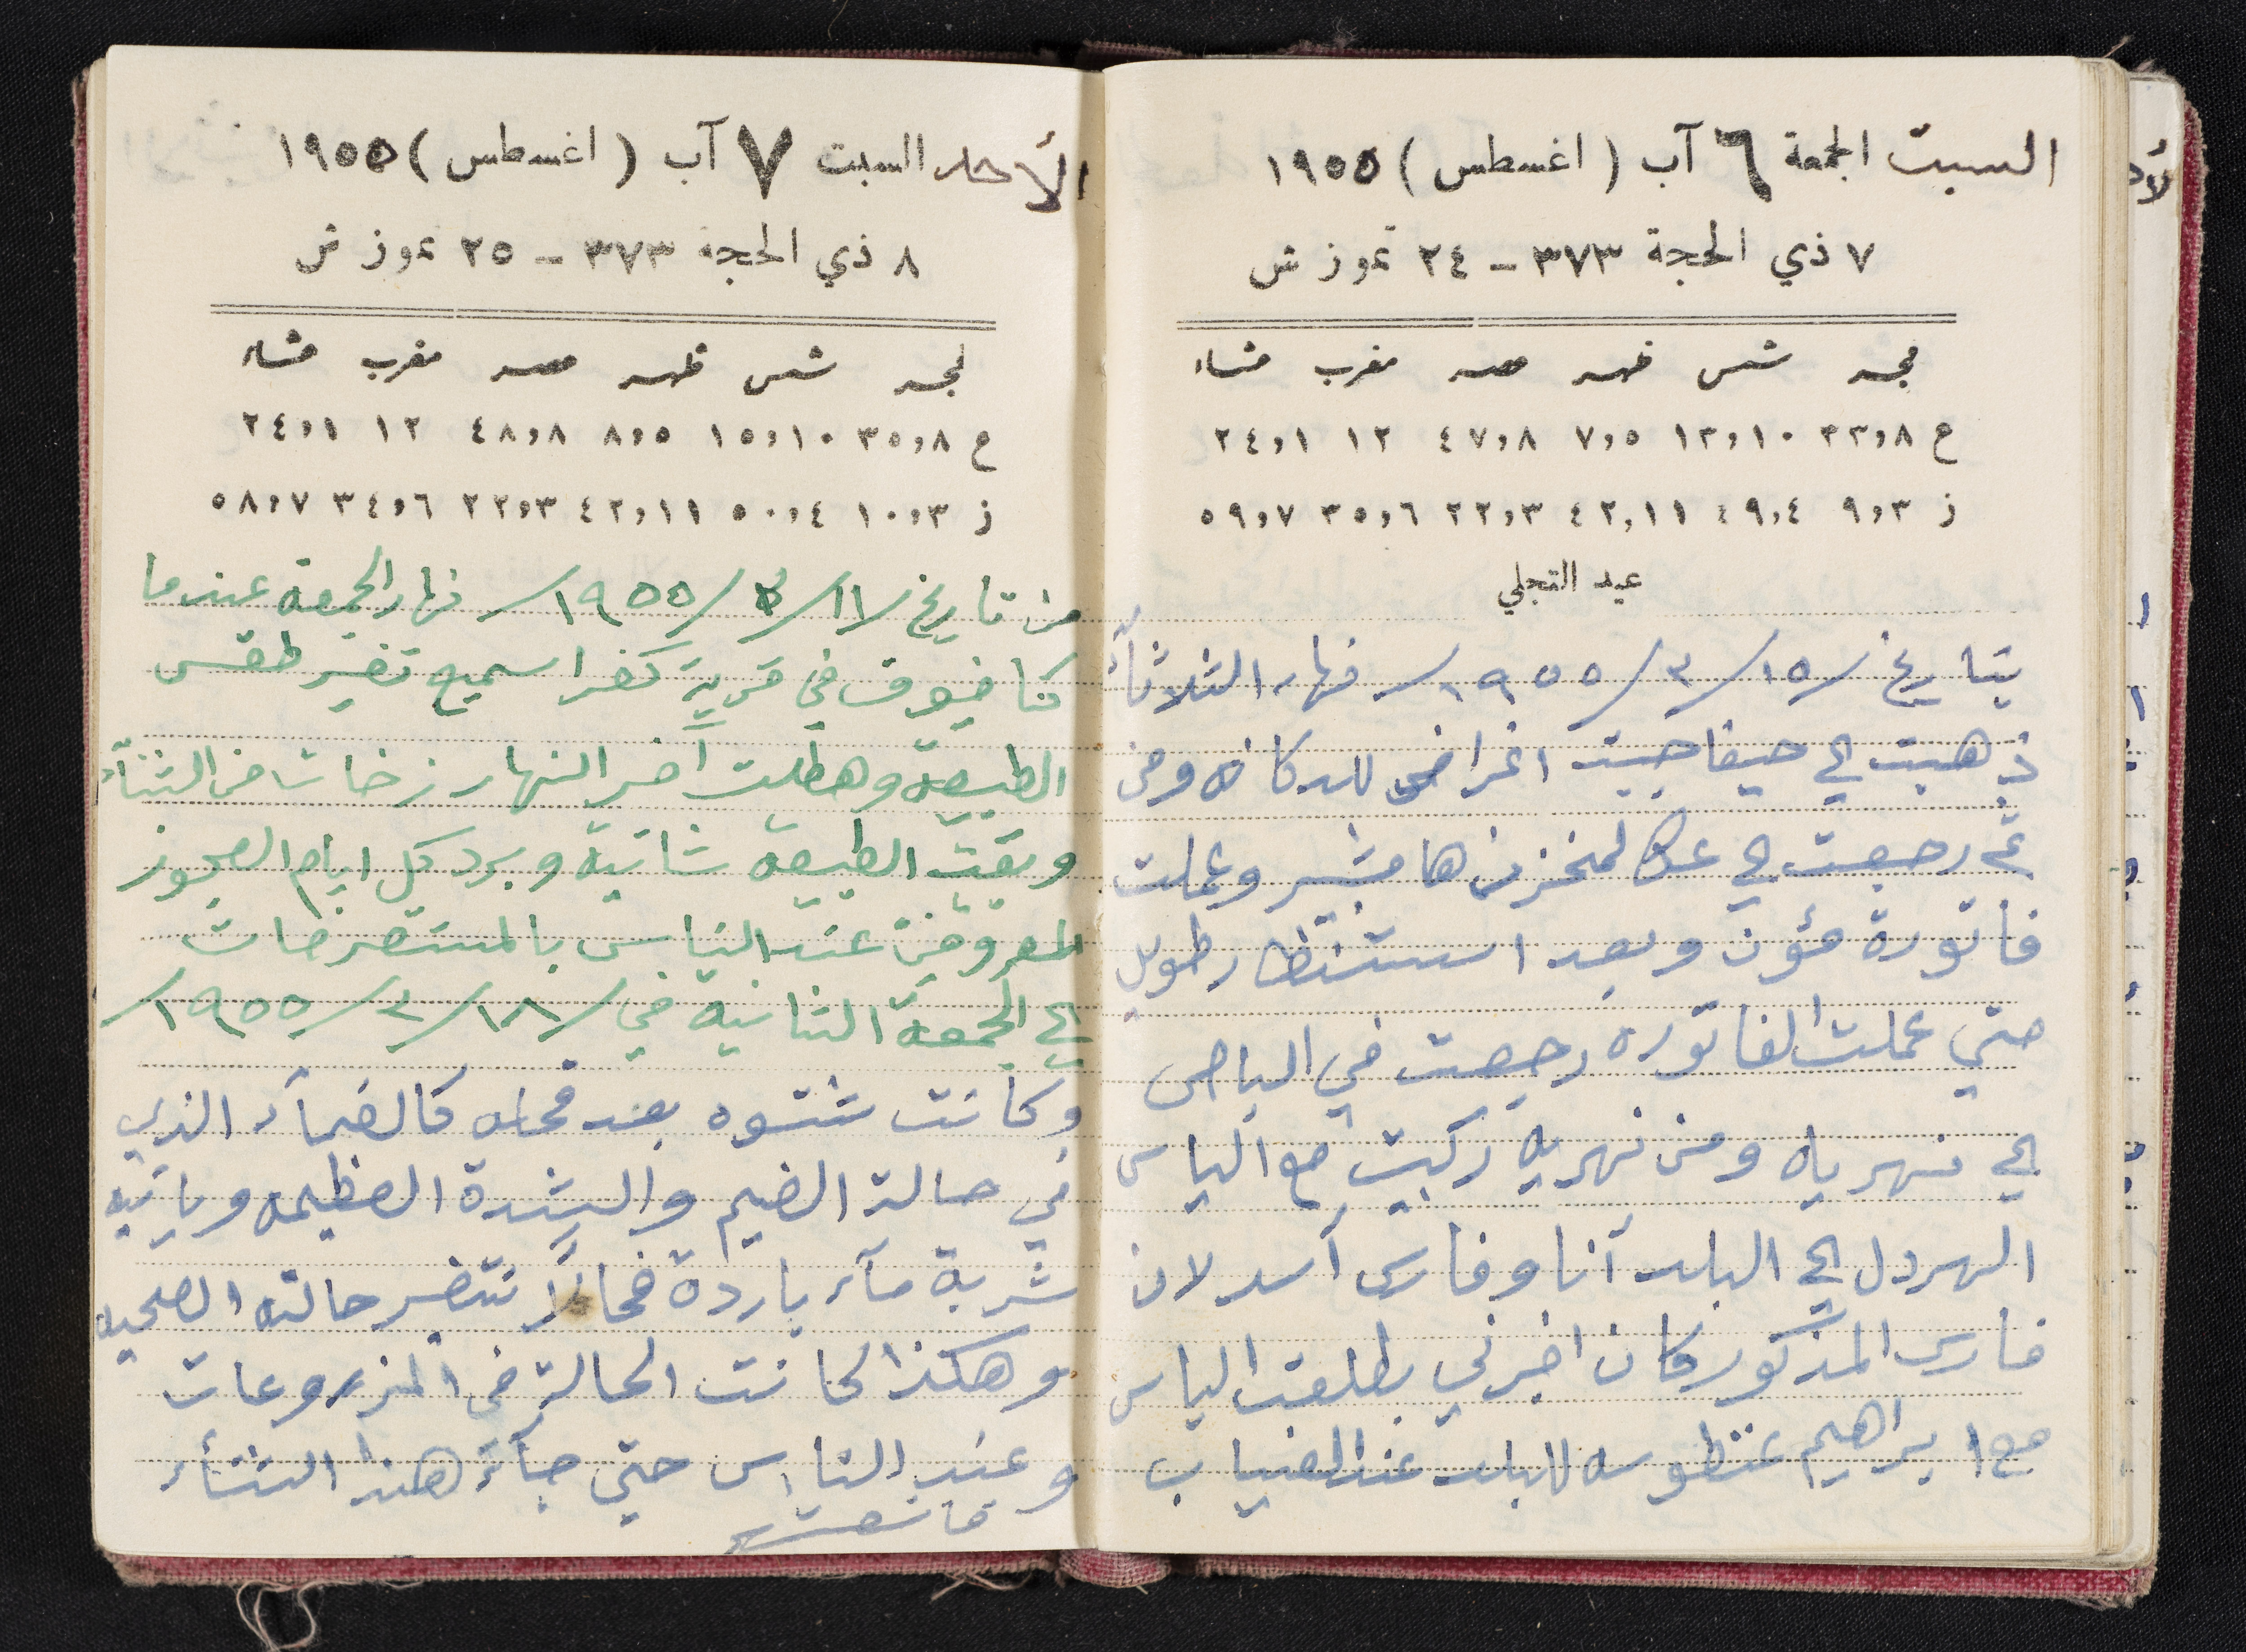 السبت الجمعة ٦ آب (اغسطس) ١٩٥٥
٧ ذي الحجة ٣٧٣ - ٢٤ تموز ش
فجر شمس ظهر عصر مغرب عشاء
ع ٣٣,٨ ١٣,١٠ ٧,٥ ٤٧,٨ ١٢ ٢٤,١
ز ٩,٣ ٤٩,٤ ٤٢,١١ ٢٢,٣ ٣٥,٦ ٥٩,٧
عيد التجلي
بتاريخ /١٥/٣/١٩٥٥/ نهار الثلاثاء
ذهبت الي حيفا جبت اغراض للدكانه ومن
ثم رجعت الي عكا لمخزن هامشبير وعملت
فاتورة مؤن وبعد استنتظار طويل
حتي عملت الفاتوره رجعت في الباص
الي نهرياه ومن نهريه ركبت مع الياس
الهردل الي البلد أنا وفارس أسد لان
فارس المذكور كان اخبرني بطلعت الياس
مع ابراهيم عنطوس للبلد عند الغياب
الأحد السبت ٧ آب (اغسطس) ١٩٥٥
٨ ذي الحجة ٣٧٣ - ٢٥ تموز ش
فجر شمس ظهر عصر مغرب عشاء
ع ٣٥,٨ ١٥,١٠ ٨,٥ ٤٨,٨ ١٢ ٢٤,١
ز ١٠,٣ ٥٠,٤ ٤٢,١١ ٢٢,٣ ٣٤,٦ ٥٨,٧
من تاريخ /١١/٣/١٩٥٥/ نهار الجمعة عندما
كنا ضيوف في قرية كفر اسميع تغير طقس
الطبيعة وهطلت آخر النهار زخات من الشتاء
وبقيت الطبيعه شاتية وبرد كل ايام العجوز
المعروفين عند الناس بالمستقرضات
الي الجمعة الثانيه في /١٨/٣/١٩٥٥/
وكانت شتوه بعد قحله كالضمآء الذي
في حالة الضيم والشدة العظيمه ويأتيه
شربة مآء باردة فحالاً تتغير حالته الصحيه
وهكذا كانت الحالة في المزروعات
وعند الناس حتي جآء هذا الشتاء
فانتعشت